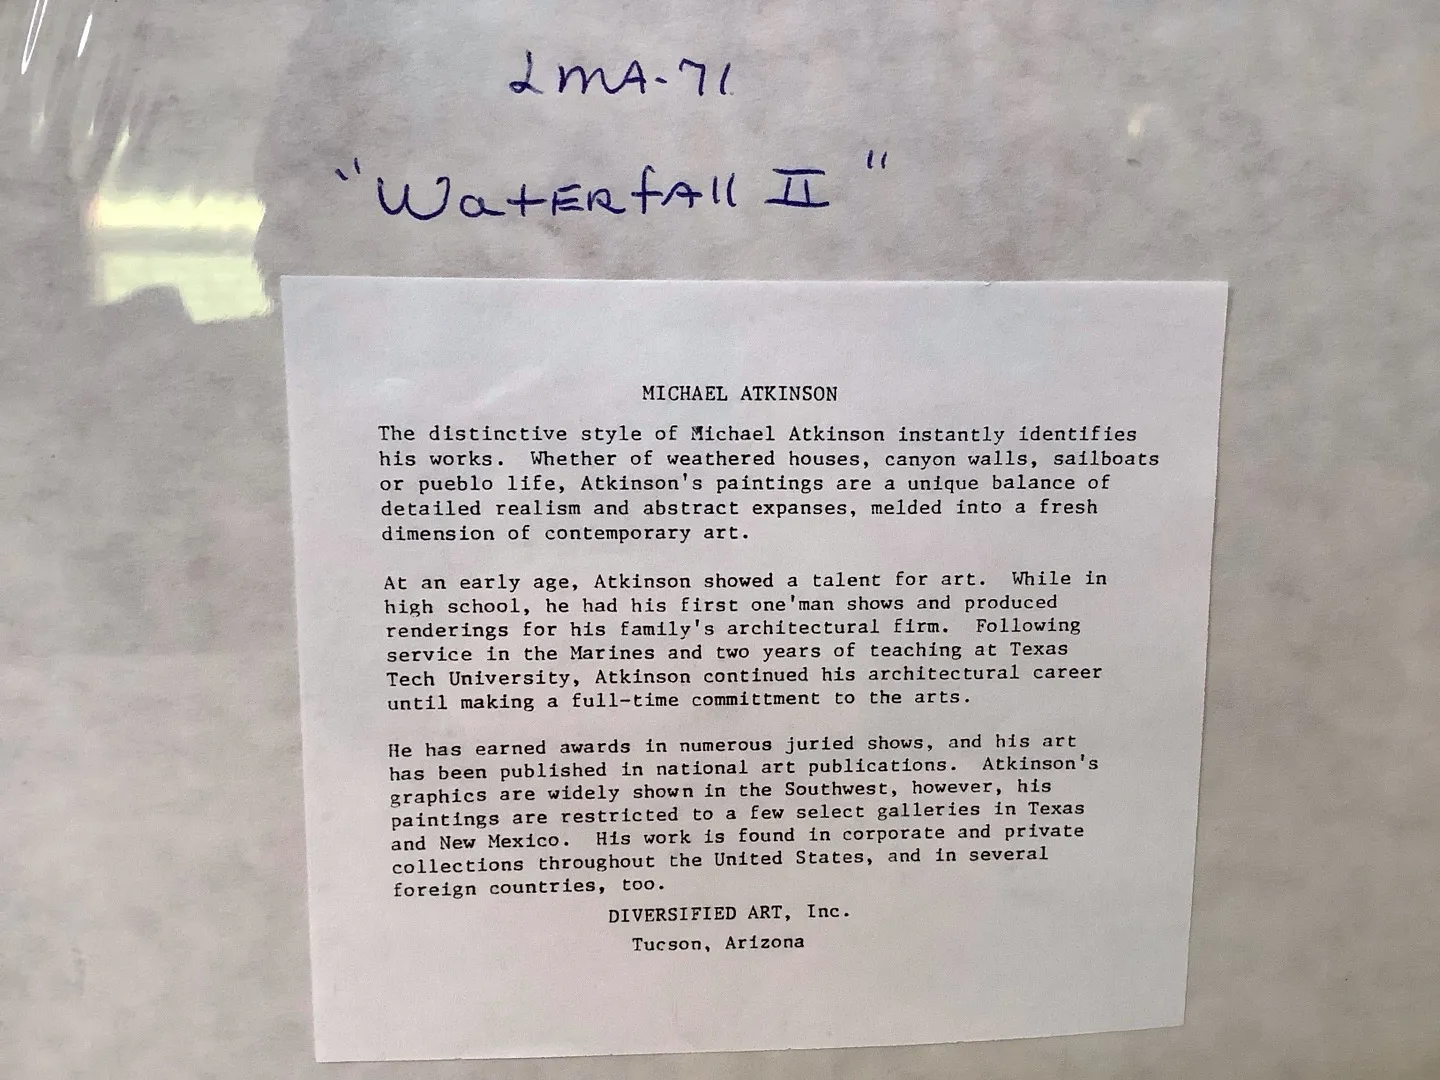 LMA-71
"WatERfAll II"
MICHAEL ATKINSON
The distinctive style of Michael Atkinson instantly identifies
his works. Whether of weathered houses, canyon walls, sailboats
or pueblo life, Atkinson's paintings are a unique balance of
detailed realism and abstract expanses, melded into a fresh
dimension of contemporary art.
At an early age, Atkinson showed a talent for art. While in
high school, he had his first one'man shows and produced
renderings for his family's architectural firm. Following
service in the Marines and two years of teaching at Texas
Tech University, Atkinson continued his architectural career
until making a full-time committment to the arts.
He has earned awards in numerous juried shows, and his art
has been published in national art publications. Atkinson's
graphics are widely shown in the Southwest, however, his
paintings are restricted to a few select galleries in Texas
and New Mexico. His work is found in corporate and private
collections throughout the United States, and in several
foreign countries, too.
DIVERSIFIED ART, Inc.
Tucson, Arizona